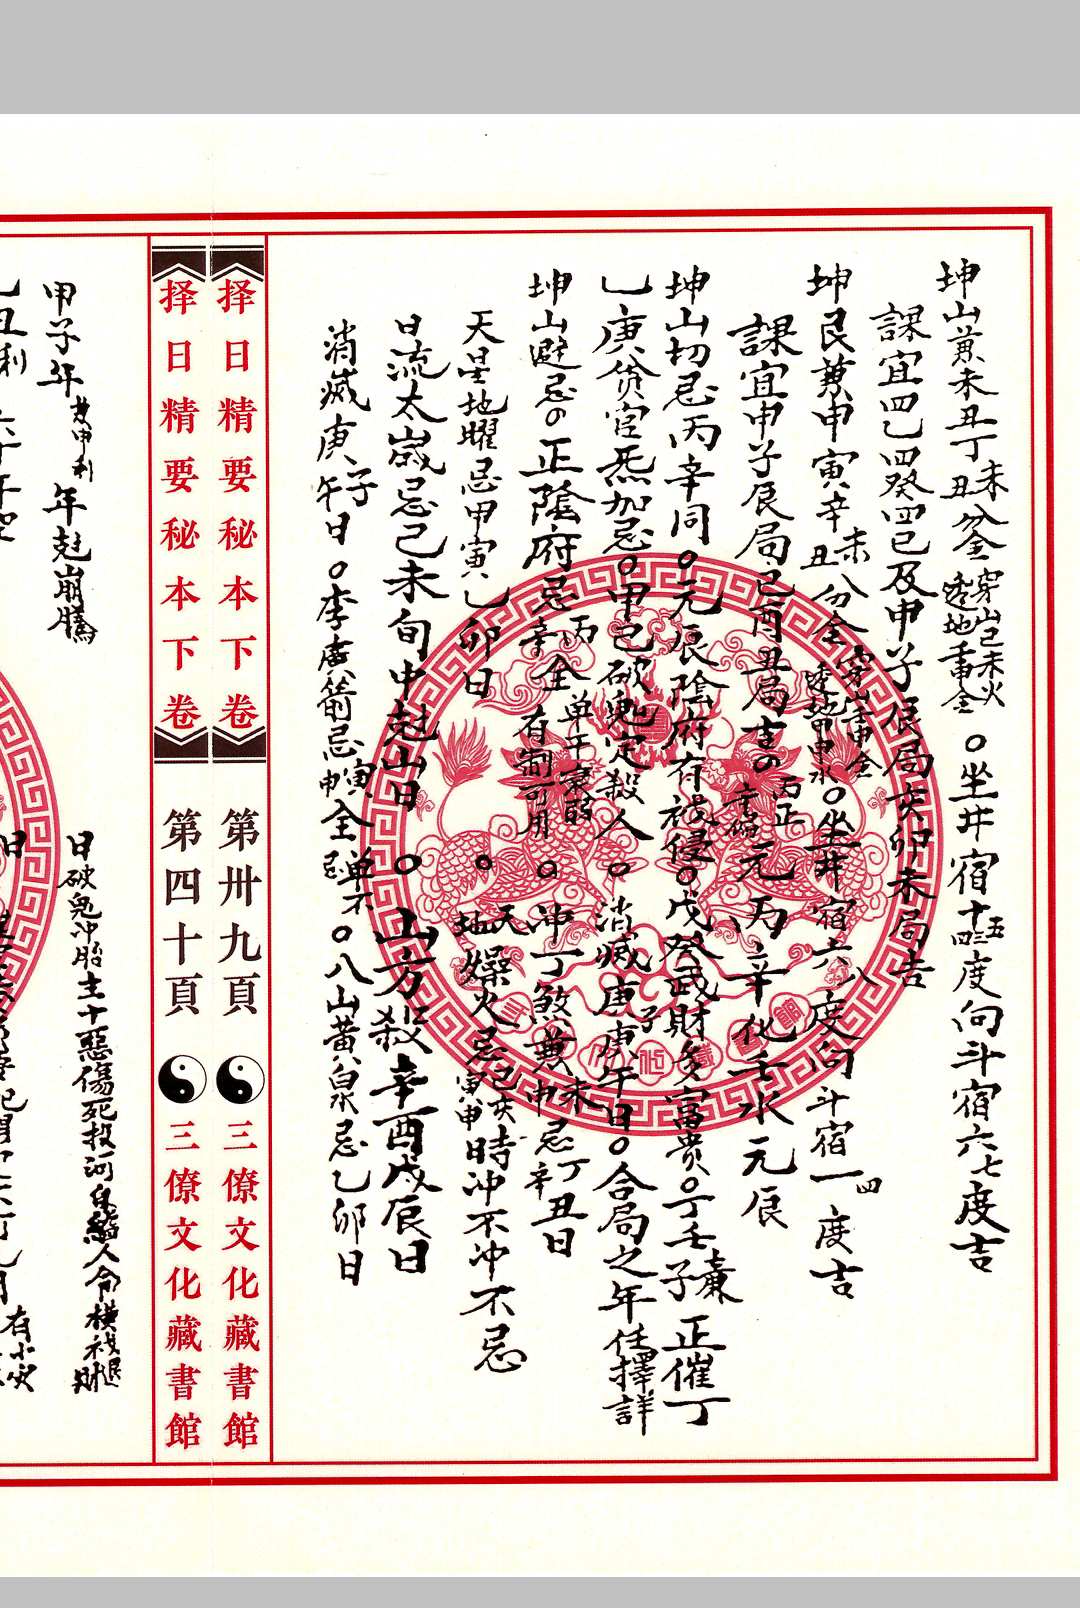 坤山兼未丑丁未丑分金穿山己未火透地重金。坐井宿十三四五度向斗宿六七度吉
課宜四乙四癸四己及申子辰局亥卯未局吉
坤艮兼申寅辛未丑分金穿山壬申金透地甲申水。坐井宿六八度向斗宿一四度吉
課宜申子辰局巳酉丑局吉の丙正元丙辛化壬水元辰
坤山切忌丙辛同。元辰陰府有禄侵。戊癸武財多富貴。丁壬子廉正催丁
乙庚貧官炁加忌。甲己破鬼定殺人。消滅庚子庚午日。合局之年任擇詳
坤山避忌の正陰府忌丙辛全单干衰時有制可用。冲丁煞兼未申忌丁辛丑日
天星地曜忌甲寅乙卯日。天地燥火忌己亥寅申時冲不冲不忌
日流太歲忌己未旬中尅山日。山方殺辛酉戊辰日
消滅庚子午日。李廣箭忌寅申全忌单不。八山黃泉忌乙卯日
择日精要秘本下卷 第卅九頁 三僚文化藏書館
择日精要秘本下卷 第四十頁 三僚文化藏書館
甲子年艮申利年尅崩騰
日破鬼冲胎主十惡傷死投河自縊人命橫禍退財